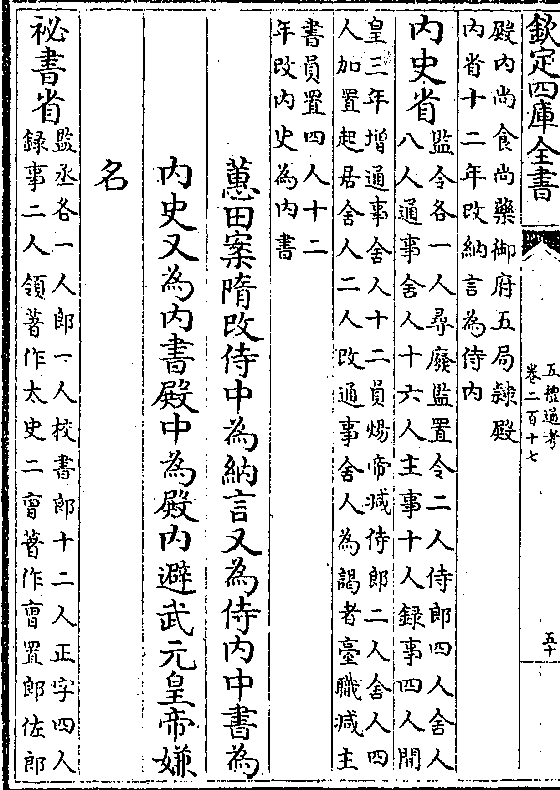 欽定四庫全書
五禮通考
卷二百十七
五十
殿內尚食尚藥御府五局隷殿
內省十二年改納言為侍內
內史省
監令各一人尋廢監置令二人侍郎四人舍人
八人通事舍人十六人主事十人録事四人開
皇三年增通事舍人十二員煬帝減侍郎二人舍人四
人加置起居舍人二人改通事舍人為謁者臺職減主
書員置四人十二
年改內史為內書
蕙田案隋改侍中為納言又為侍內中書為
內史又為內書殿中為殿內避武元皇帝嫌
名
祕書省
監丞各一人郎一人校書郎十二人正字四人
録事二人領著作太史二曹著作曹置郎佐郎